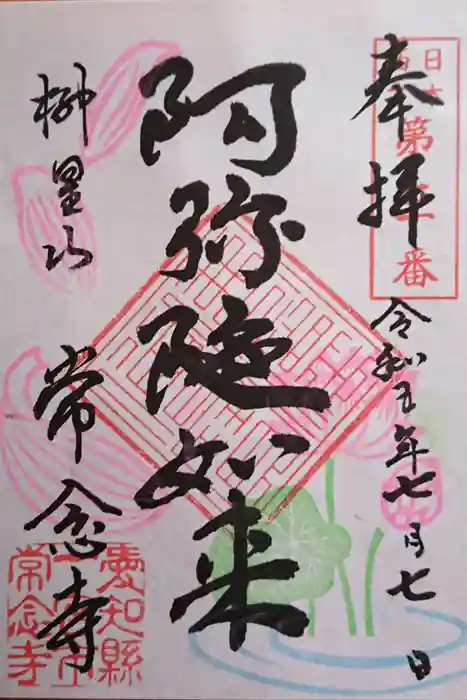 奉拝
令和五年七月七日
阿弥陀如来
柳星山
常念寺
日本
第
番
愛知縣
常念寺